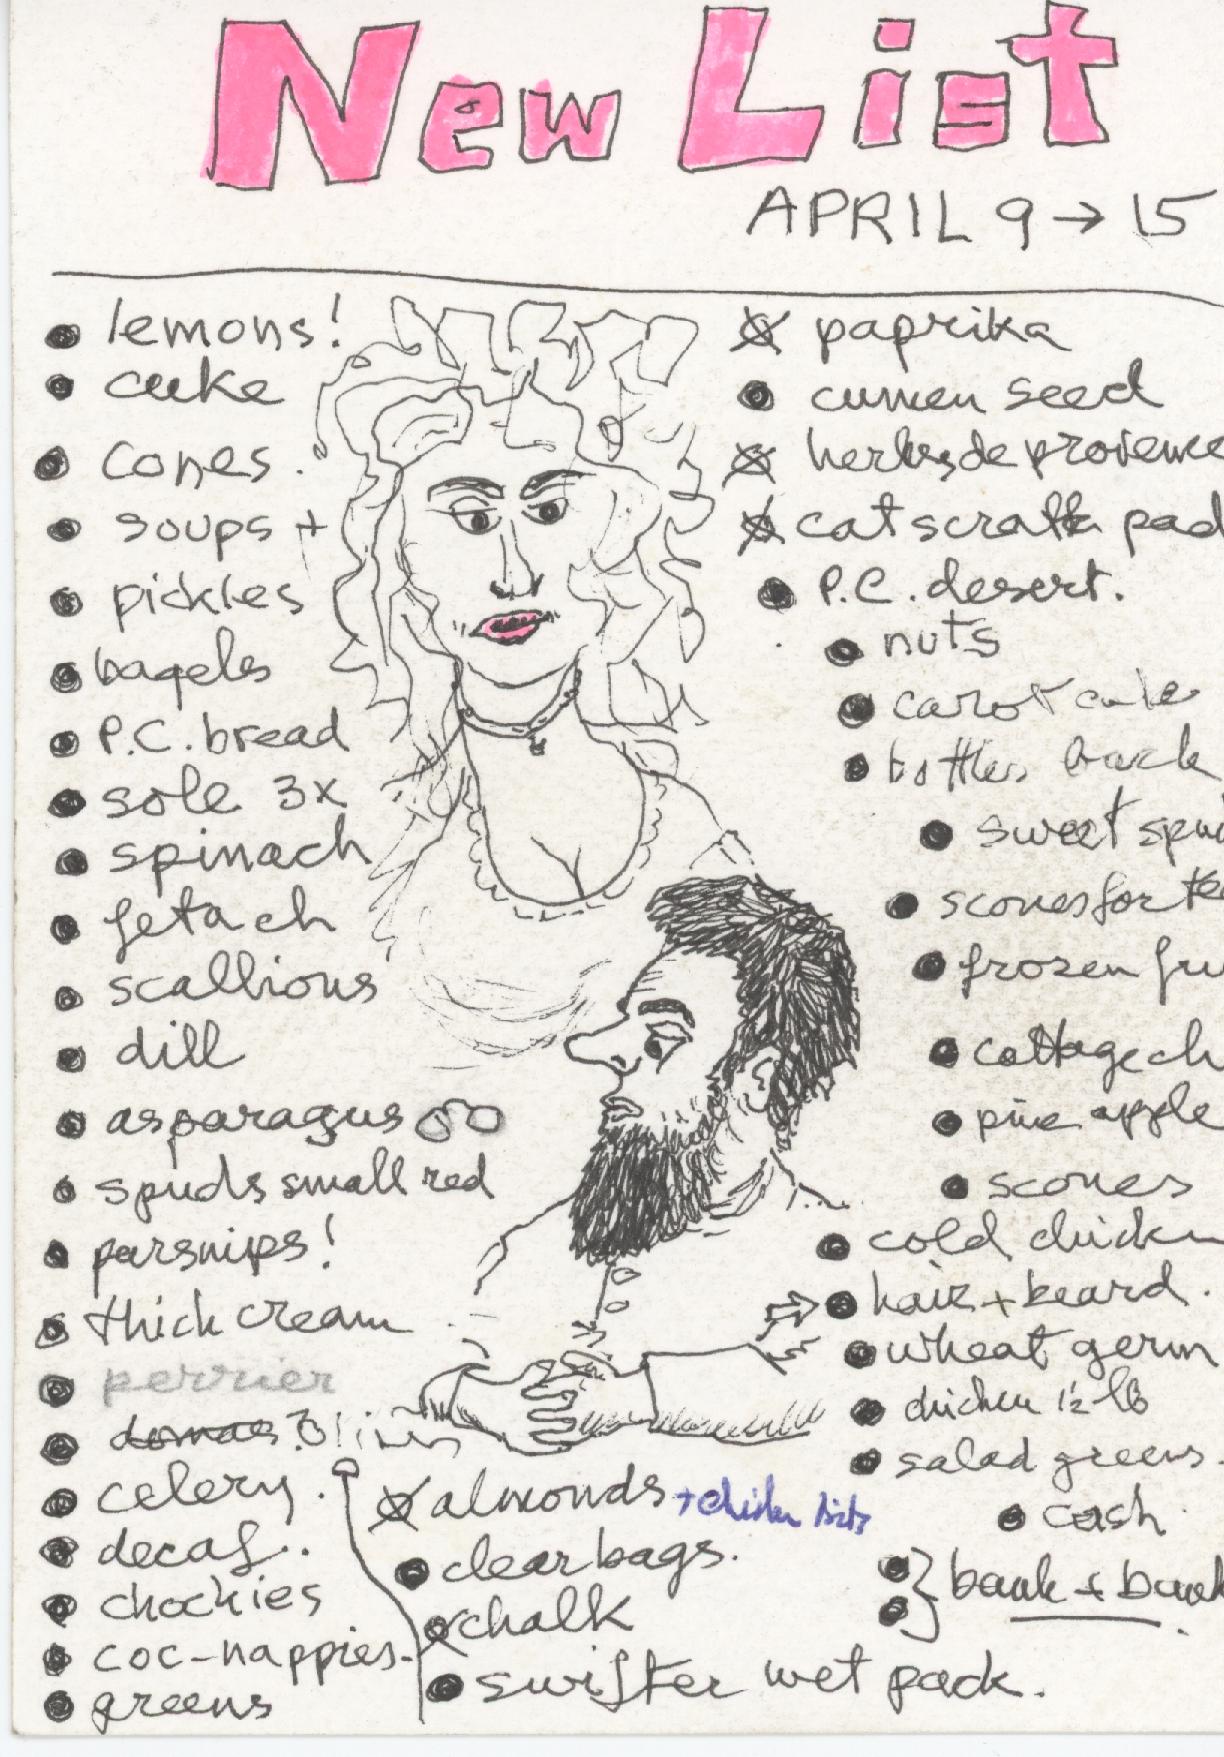 New List
APRIL 9 → 15
lemons!
cuke
cones.
soups +
pickles
bagels
P.C. bread
sole 3x
spinach
feta ch
scallions
dill
asparagus
spuds small red
parsnips!
thick cream
perrier
celery.
decaf.
chockies
coc-nappies-
greens
almonds + chicken bits
clear bags.
chalk
swifter wet pack.
paprika
cumen seed
herbs de provence
cat scratch pad
P.C. desert.
nuts
carot cake
bottles back
sweet spu
scones for tea
frozen fru
cottage ch
pine apple
scones
cold chicken
hair + beard.
wheat germ
chicken 1/2 lb
salad greens.
cash
bank +